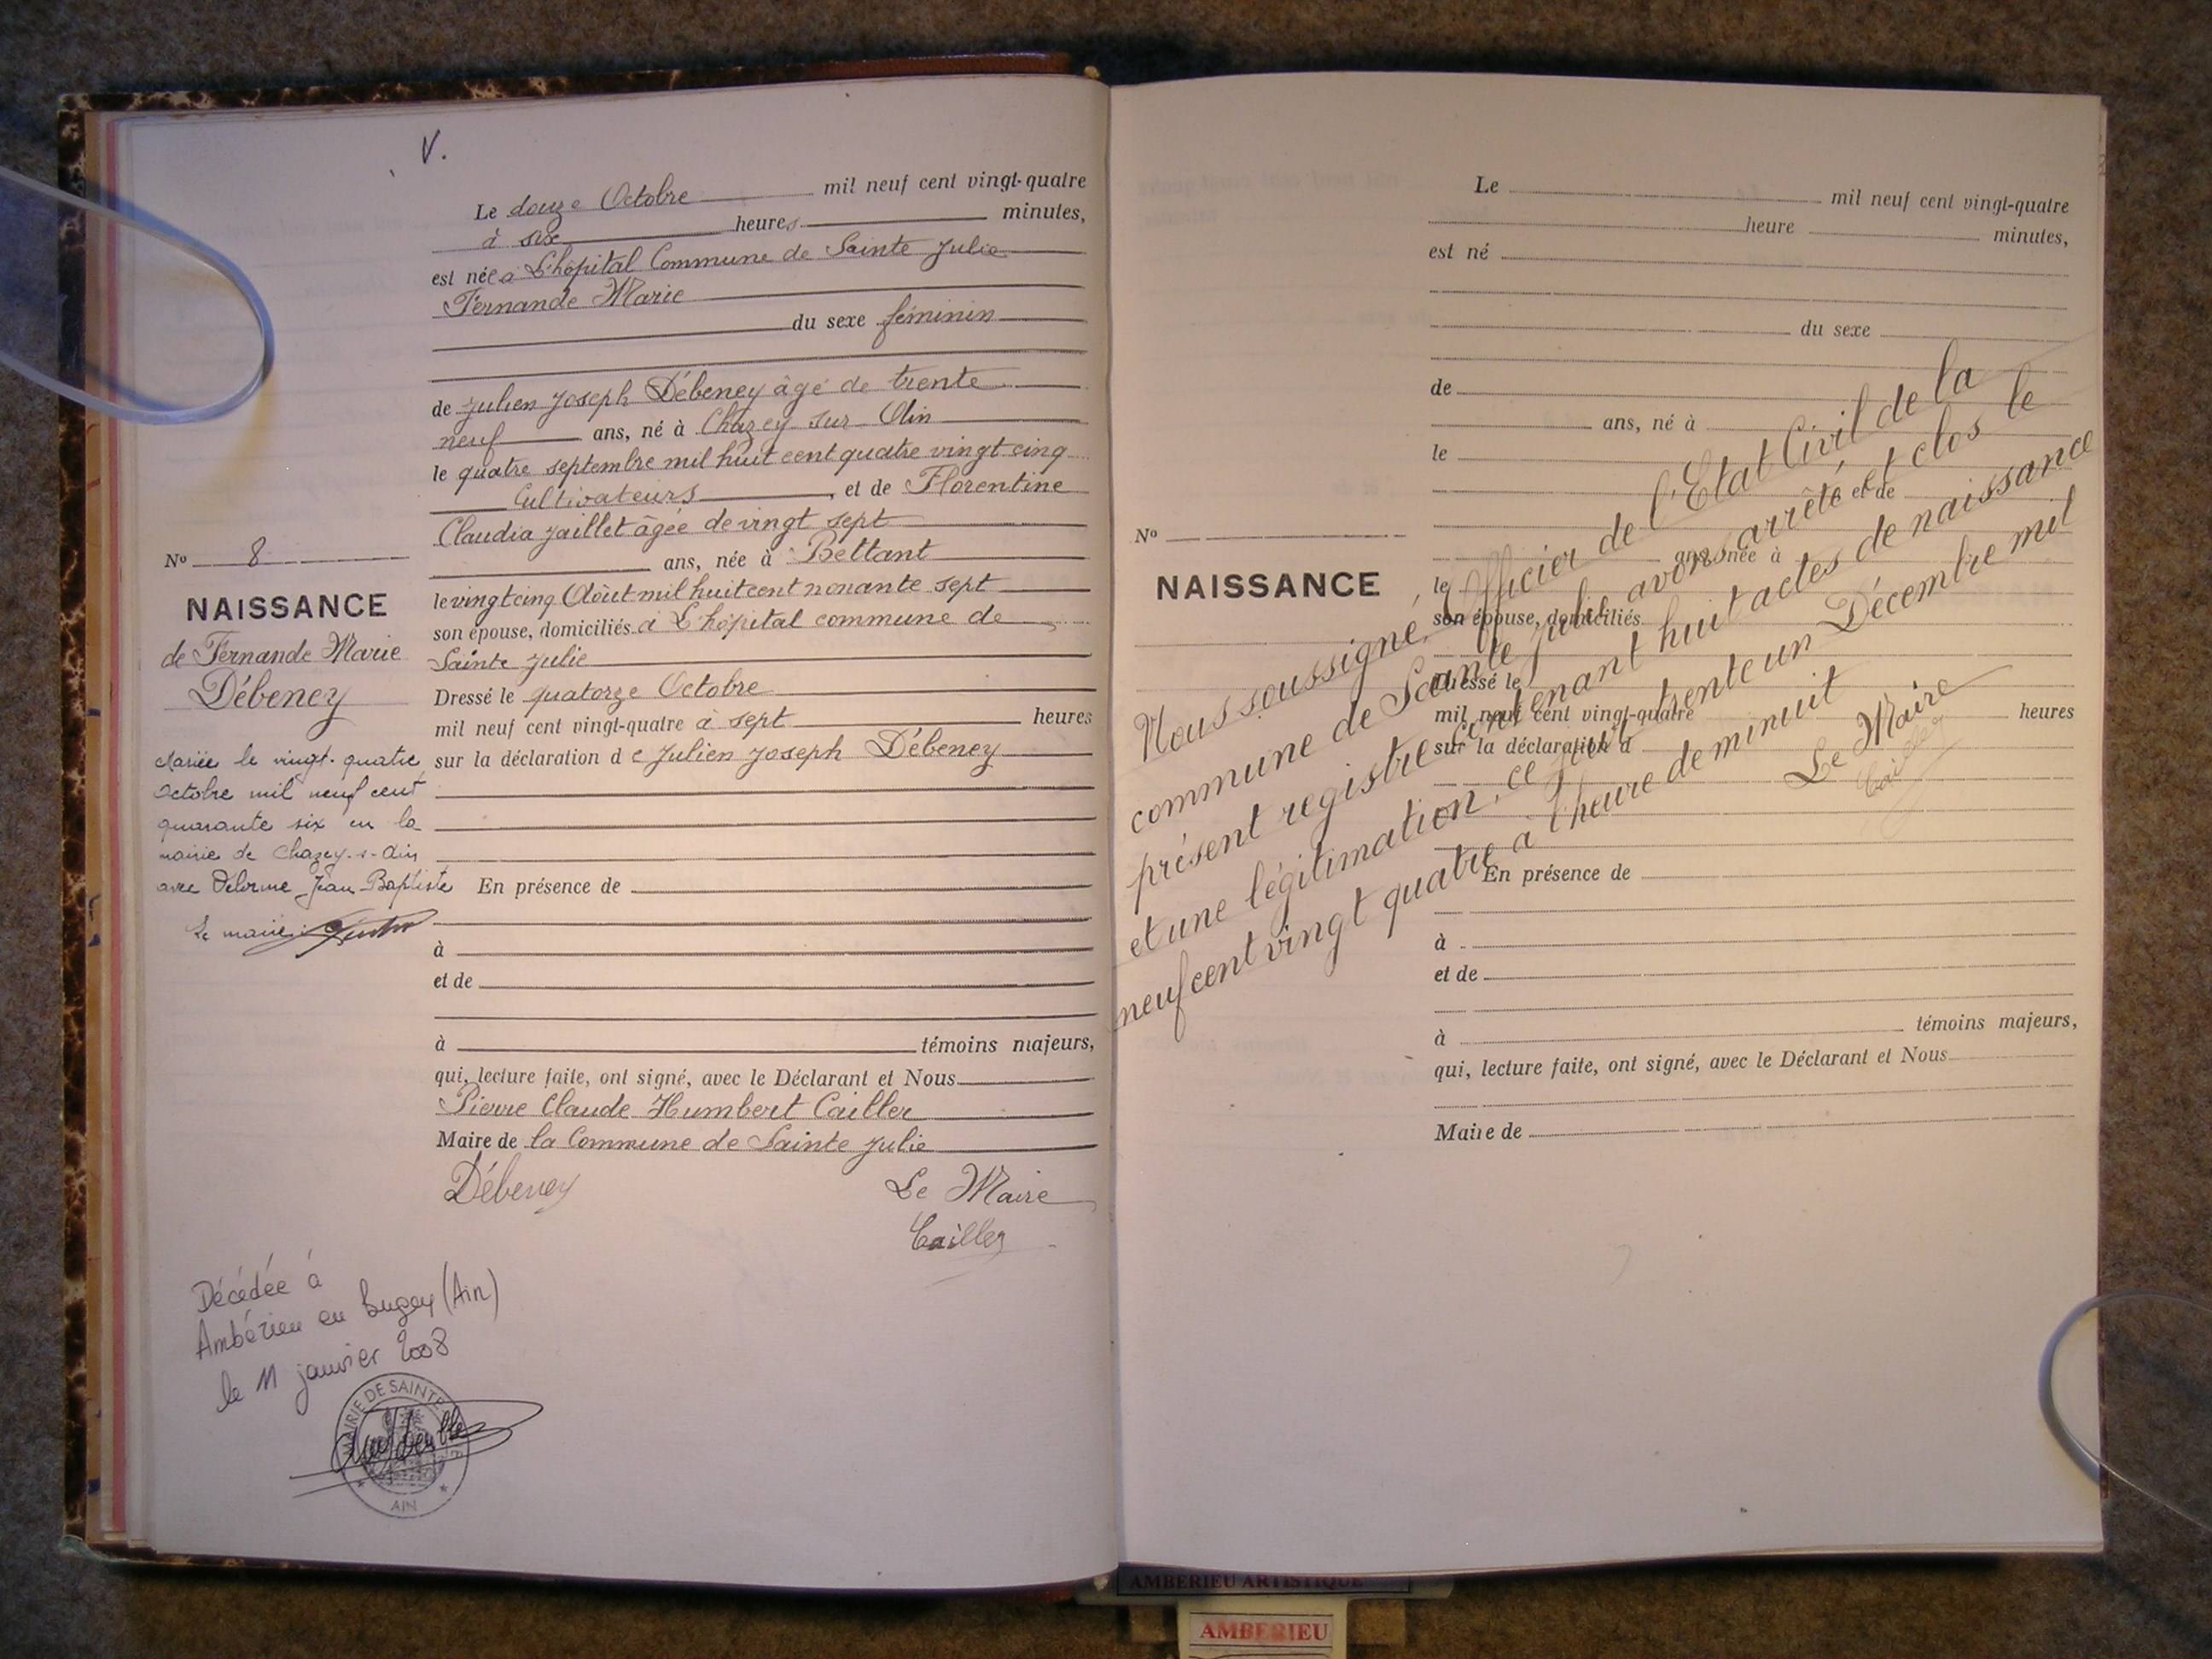 V.
Le douze Octobre mil neuf cent vingt-quatre
à six heures minutes,
est née à L'hôpital Commune de Sainte Julie
Fernande Marie
du sexe féminin
de Julien Joseph Débeney âgé de trente
neuf ans, né à Chazey sur Ain
le quatre septembre mil huit cent quatre vingt cinq
Cultivateurs, et de Florentine
Claudia Jaillet âgée de vingt sept
ans, née à Bettant
le vingt cinq Août mil huit cent nonante sept
son épouse, domiciliés à L'hôpital commune de
Sainte Julie
Dressé le quatorze Octobre
mil neuf cent vingt-quatre à sept heures
sur la déclaration de Julien Joseph Débeney
En présence de
à
et de
à témoins majeurs,
qui, lecture faite, ont signé, avec le Déclarant et Nous
Pierre Claude Humbert Cailler
Maire de la Commune de Sainte Julie
Débeney Le Maire
Cailler
No 8
NAISSANCE
de Fernande Marie
Débeney
Mariée le vingt-quatre
Octobre mil neuf cent
quarante six en la
mairie de Chazey-s-Ain
avec Delorme Jean Baptiste
Le maire:
Décédée à
Ambérieu en Bugey (Ain)
le 11 janvier 2008
MAIRIE DE SAINTE
AIN
Le mil neuf cent vingt-quatre
heure minutes,
est né
du sexe
de
ans, né à
le
et de
ans, née à
le
son épouse, domiciliés
Dressé le
mil neuf cent vingt-quatre heures
sur la déclaration d
En présence de
à
et de
à témoins majeurs,
qui, lecture faite, ont signé, avec le Déclarant et Nous
Maire de
No
NAISSANCE
Nous soussigné, Officier de l'Etat Civil de la
commune de Sainte Julie avons arrêté et clos le
présent registre contenant huit actes de naissance
et une légitimation, ce jour trente un Décembre mil
neuf cent vingt quatre à l'heure de minuit
Le Maire
Cailler
AMBERIEU ARTISTIQUE
AMBERIEU